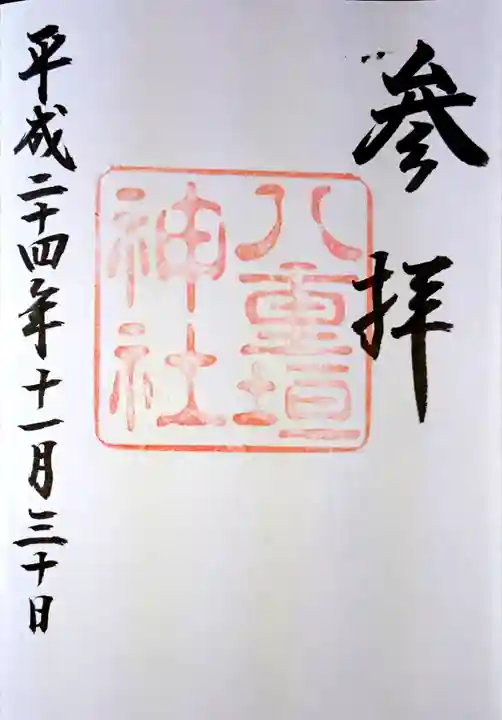 参拝
八重垣
神社
平成二十四年十一月三十日